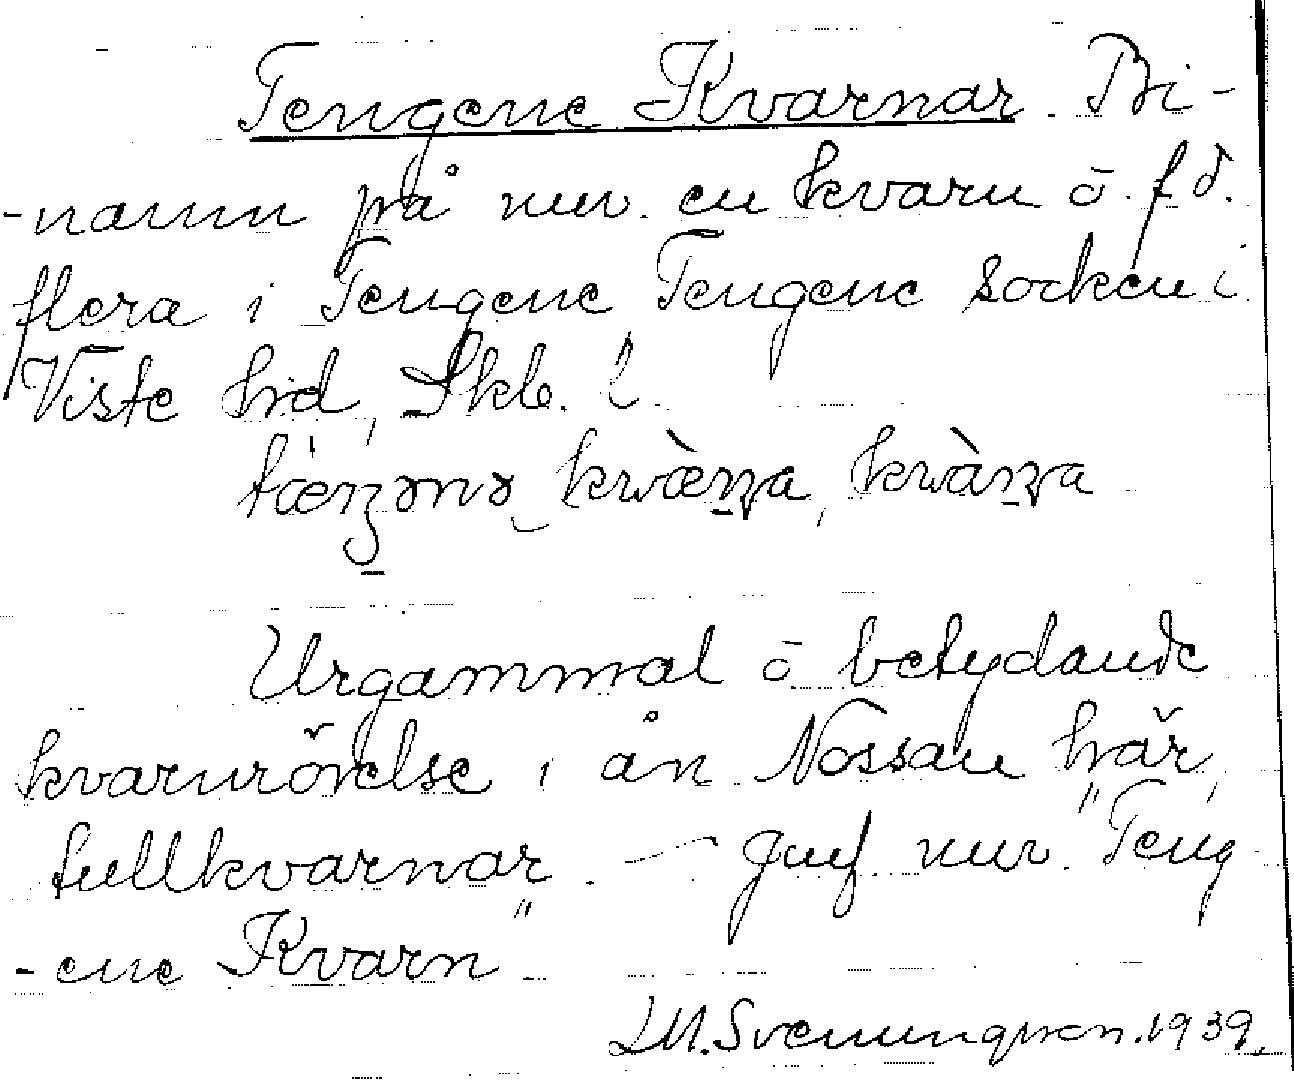 Tengene Kvarnar. Bi-
-namn på nuv. en kvarn ō f d.
flera i Tengene Tengene socken i
Viste hd, Skb. l.
kwæ̀ɳa, kwàɳa
Urgammal ō betydande
kvarnrörelse i ån Nossan här,
tullkvarnar. — Jmf. nuv. "Teng
-ene Kvarn"
LM. Svenungsson. 1939.